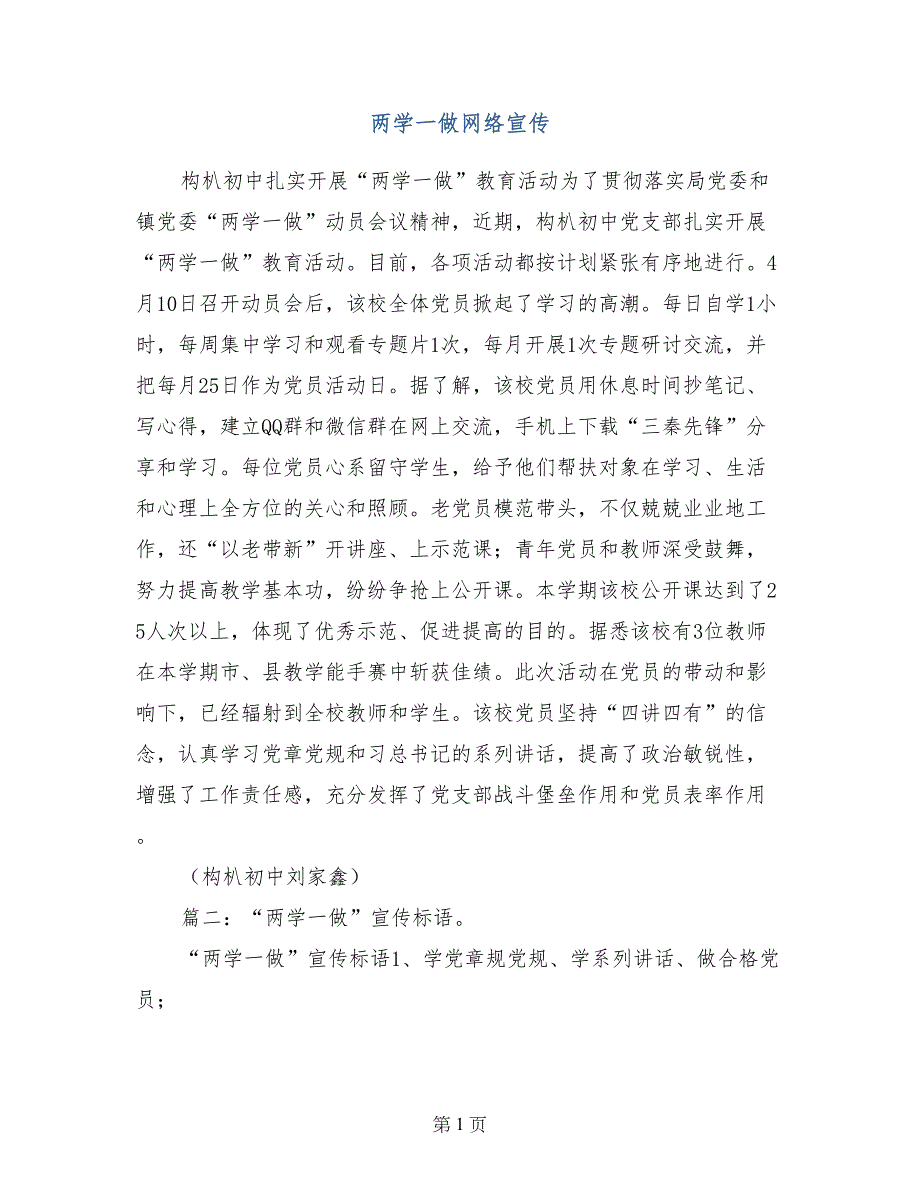 两学一做网络宣传
构朳初中扎实开展“两学一做”教育活动为了贯彻落实局党委和
镇党委“两学一做”动员会议精神，近期，构朳初中党支部扎实开展
“两学一做”教育活动。目前，各项活动都按计划紧张有序地进行。4
月10日召开动员会后，该校全体党员掀起了学习的高潮。每日自学1小
时，每周集中学习和观看专题片1次，每月开展1次专题研讨交流，并
把每月25日作为党员活动日。据了解，该校党员用休息时间抄笔记、
写心得，建立QQ群和微信群在网上交流，手机上下载“三秦先锋”分
享和学习。每位党员心系留守学生，给予他们帮扶对象在学习、生活
和心理上全方位的关心和照顾。老党员模范带头，不仅兢兢业业地工
作，还“以老带新”开讲座、上示范课；青年党员和教师深受鼓舞，
努力提高教学基本功，纷纷争抢上公开课。本学期该校公开课达到了2
5人次以上，体现了优秀示范、促进提高的目的。据悉该校有3位教师
在本学期市、县教学能手赛中斩获佳绩。此次活动在党员的带动和影
响下，已经辐射到全校教师和学生。该校党员坚持“四讲四有”的信
念，认真学习党章党规和习总书记的系列讲话，提高了政治敏锐性，
增强了工作责任感，充分发挥了党支部战斗堡垒作用和党员表率作用
。
（构朳初中刘家鑫）
篇二：“两学一做”宣传标语。
“两学一做”宣传标语1、学党章规党规、学系列讲话、做合格党
员；
第 1 页